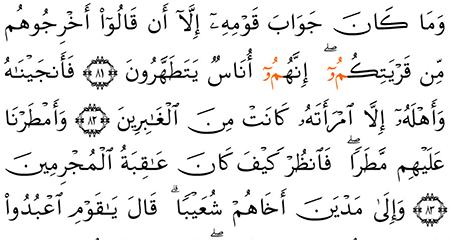 وَمَا كَانَ جَوَابَ قَوْمِهِۦٓ إِلَّآ أَن قَالُوٓا۟ أَخْرِجُوهُم
مِّن قَرْيَتِكُمُۥٓۖ إِنَّهُمُۥٓ أُنَاسٌ يَتَطَهَّرُونَ ٨١ فَأَنجَيْنَٰهُ
وَأَهْلَهُۥٓ إِلَّا ٱمْرَأَتَهُۥ كَانَتْ مِنَ ٱلْغَٰبِرِينَ ٨٢ وَأَمْطَرْنَا
عَلَيْهِم مَّطَرًاۖ فَٱنظُرْ كَيْفَ كَانَ عَٰقِبَةُ ٱلْمُجْرِمِينَ
٨٣ وَإِلَىٰ مَدْيَنَ أَخَاهُمْ شُعَيْبًاۗ قَالَ يَٰقَوْمِ ٱعْبُدُوا۟